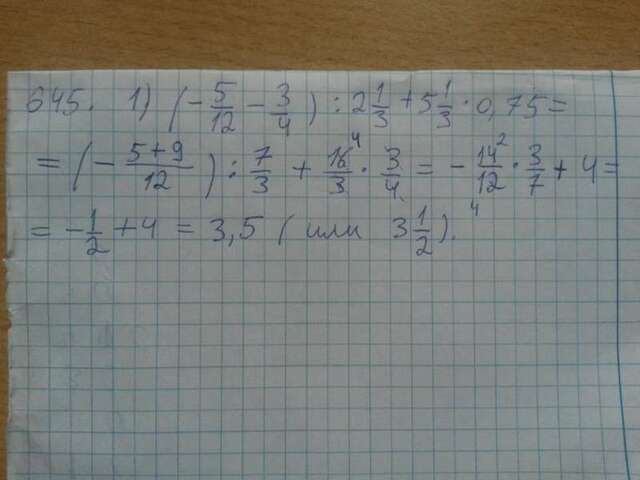 645. 1) (-5/12 - 3/4) : 2 1/3 + 5 1/3 · 0,75 =
= (- 5+9/12) : 7/3 + 16⁴/3 · 3/4 = - 14²/12₄ · 3/7 + 4 =
= -1/2 + 4 = 3,5 (или 3 1/2).